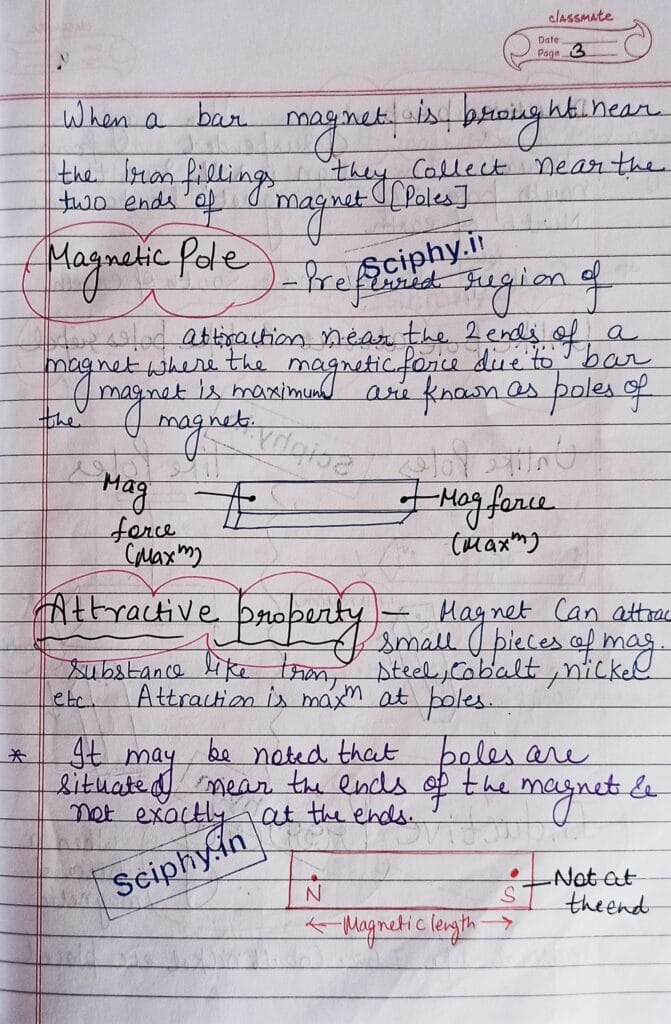 classmate
Date
Page 3
When a bar magnet is brought near
the Iron fillings they Collect near the
two ends of magnet [Poles]
Magnetic Pole
Sciphy.in
- Preferred region of
attraction near the 2 ends of a
magnet where the magnetic force due to bar
magnet is maximum are known as poles of
the magnet.
Mag
force
(Maxm)
Mag force
(Maxm)
Attractive property - Magnet Can attrac
small pieces of mag.
Substance like Iron, Steel, Cobalt, nickel
etc. Attraction is maxm at poles.
* It may be noted that poles are
situated near the ends of the magnet &
not exactly at the ends.
Sciphy.in
N S
Not at
the end
← Magnetic length →